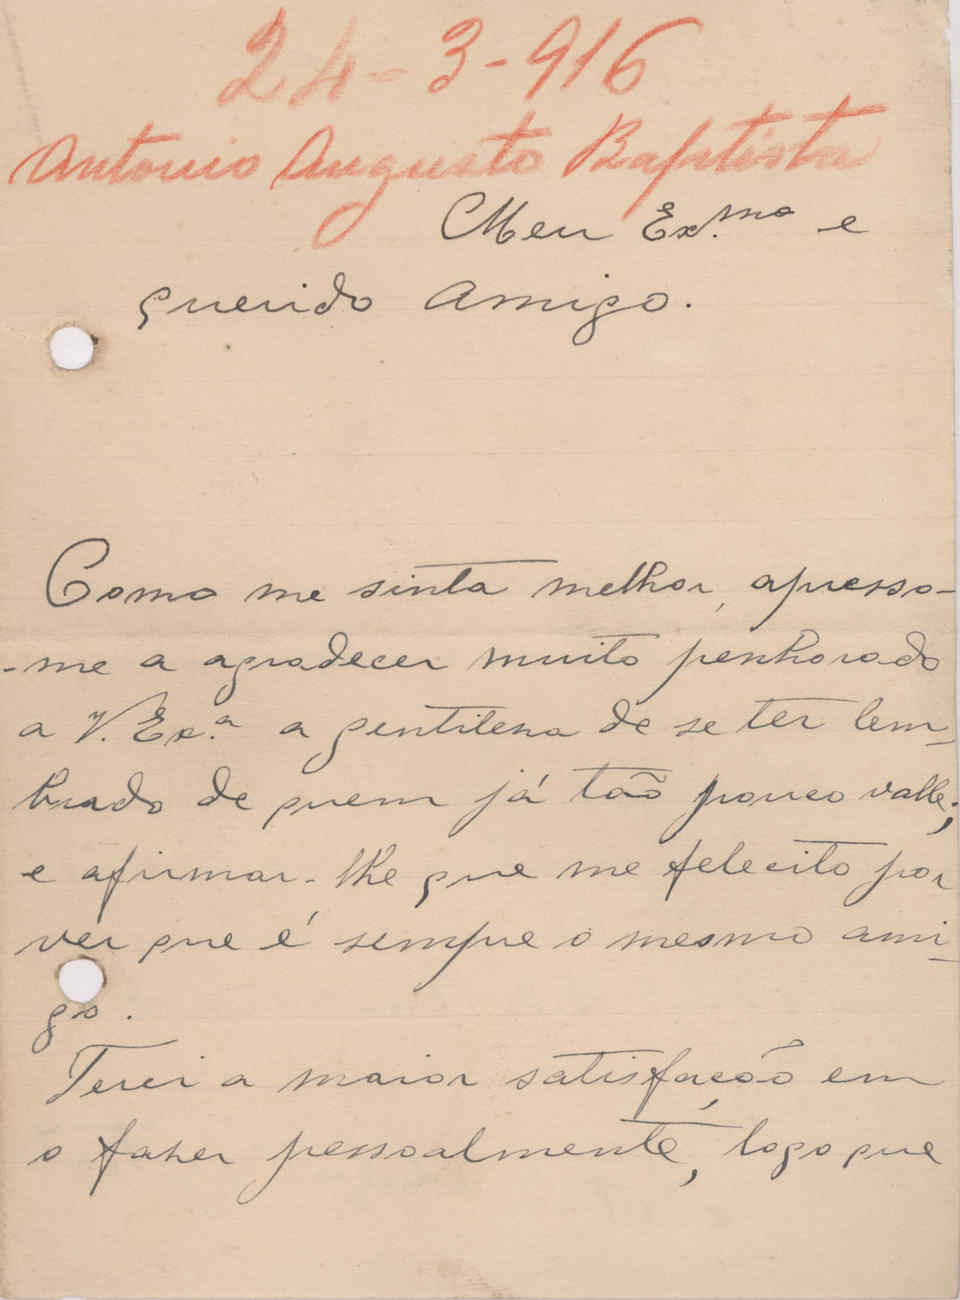 24-3-916
Antonio Augusto Baptista
Meu Ex.mo e
querido Amigo.
Como me sinta melhor, apresso-
-me a agradecer muito penhorado
a V. Ex.a a gentileza de se ter lem-
brado de quem já tão pouco valle;
e afirmar-lhe que me felecito por
ver que é sempre o mesmo ami-
go.
Terei a maior satisfação em
o fazer pessoalmente, logo que